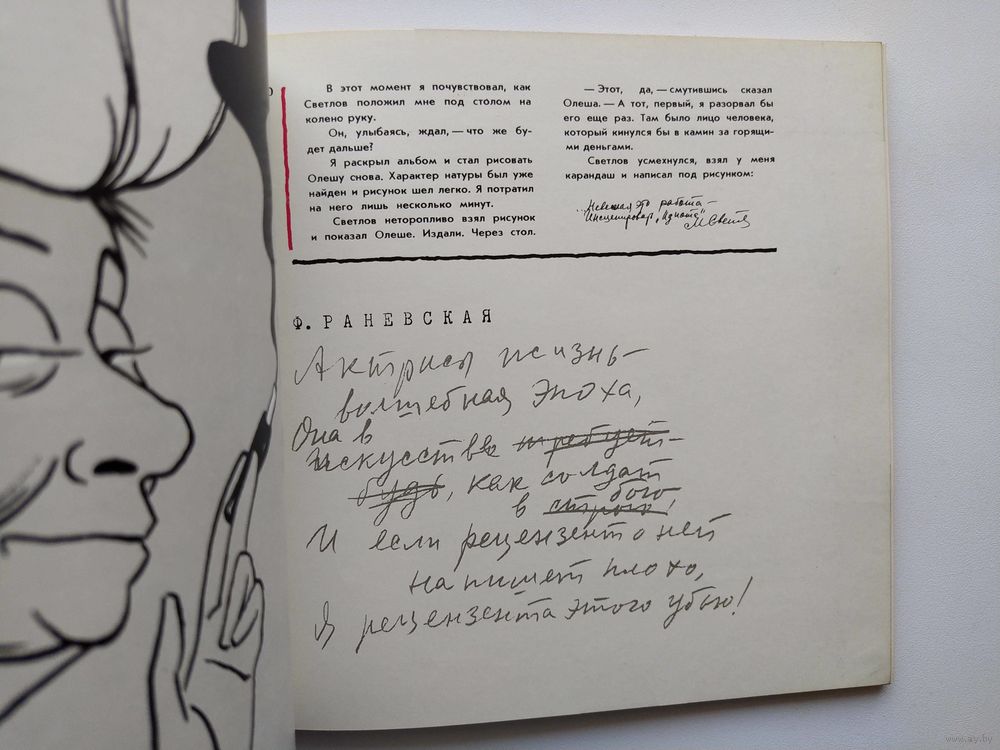 В этот момент я почувствовал, как
Светлов положил мне под столом на
колено руку.
Он, улыбаясь, ждал, — что же бу-
дет дальше?
Я раскрыл альбом и стал рисовать
Олешу снова. Характер натуры был уже
найден и рисунок шел легко. Я потратил
на него лишь несколько минут.
Светлов неторопливо взял рисунок
и показал Олеше. Издали. Через стол.
— Этот, да, — смутившись сказал
Олеша. — А тот, первый, я разорвал бы
его еще раз. Там было лицо человека,
который кинулся бы в камин за горящи-
ми деньгами.
Светлов усмехнулся, взял у меня
карандаш и написал под рисунком:
это работа —
"Идиота"
М Светл
Ф. РАНЕВСКАЯ
Актрисы жизнь —
волшебная эпоха,
Она в
искусстве требует —
будь, как солдат
бою
в строю,
И если рецензент о ней
напишет плохо,
Я рецензента этого убью!
www.ay.by